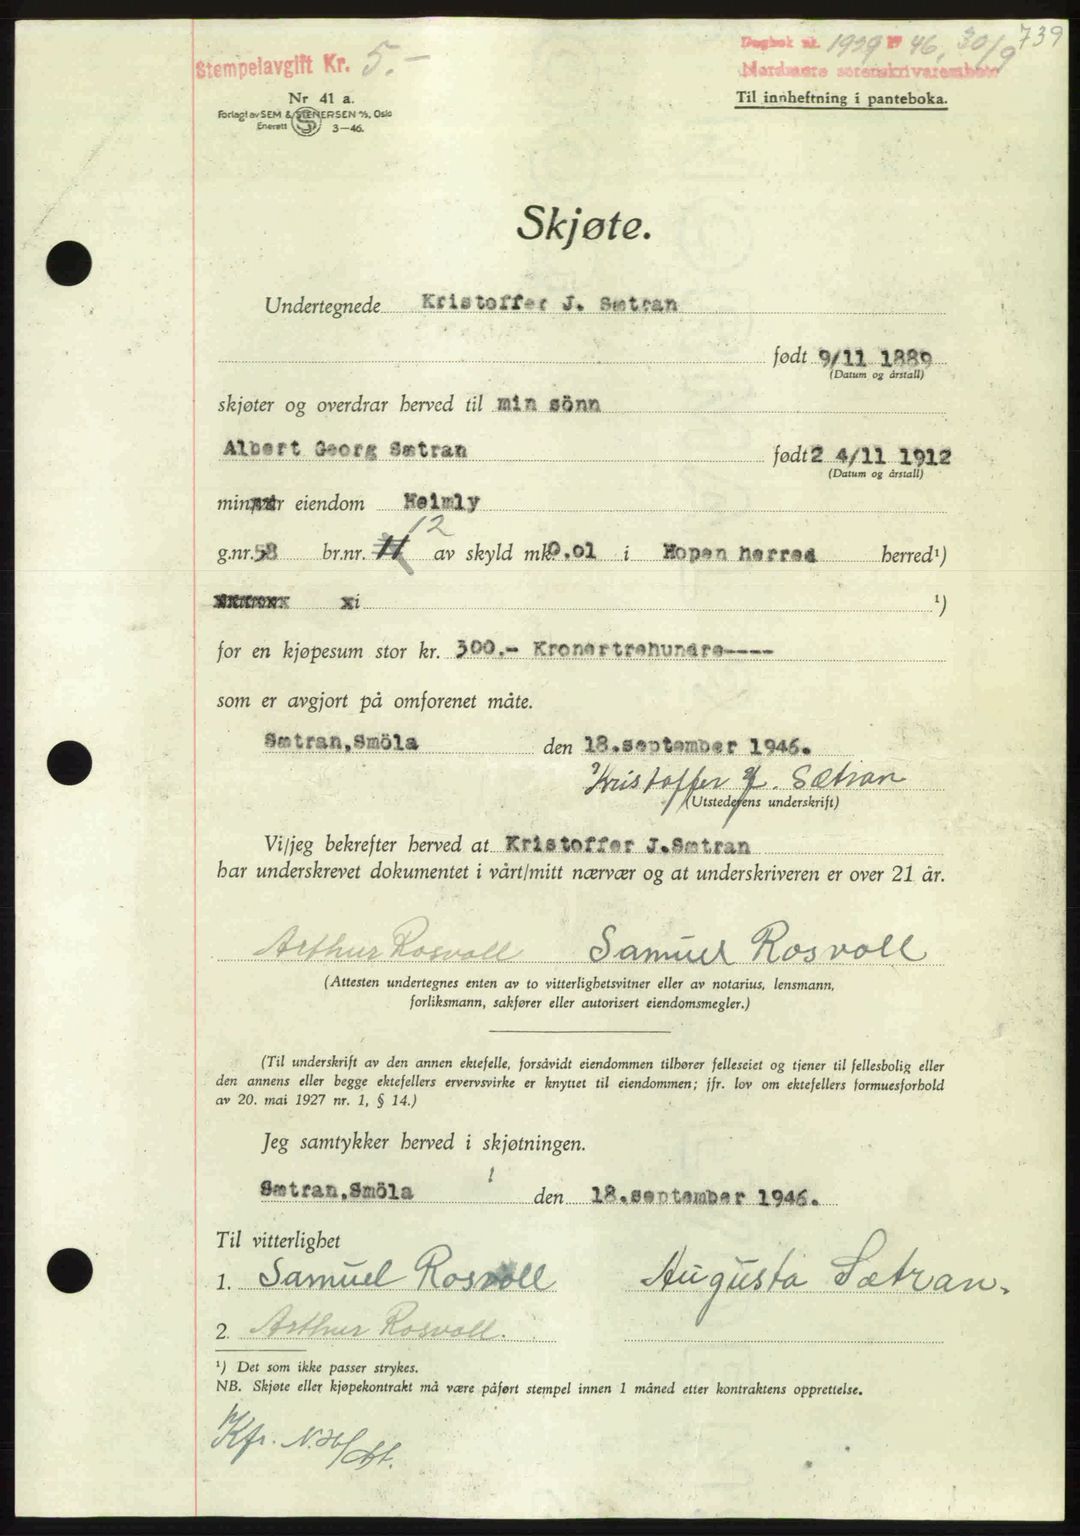 739
Stempelavgift Kr. 5.-
Dagbok nr. 1939 19 46, 30/9
Nordmøre sorenskriverembete
Nr 41 a.
Forlagt av SEM & STENERSEN A/S, Oslo
Enerett S 3-46.
Til innheftning i panteboka.
Skjøte.
Undertegnede Kristoffer J. Sætran
født 9/11 1889
(Datum og årstall)
skjøter og overdrar herved til min sönn
Albert Georg Sætran født 2 4/11 1912
(Datum og årstall)
min eiendom Heimly
12
g.nr. 58 br.nr. 11 av skyld mk. 0.01 i Hopen herred herred¹)
i ¹)
for en kjøpesum stor kr. 300.- Kronertrehundre----
som er avgjort på omforenet måte.
Sætran,Smöla den 18.september 1946.
Kristoffer J. Sætran
(Utstederens underskrift)
Vi/jeg bekrefter herved at Kristoffer J.Sætran
har underskrevet dokumentet i vårt/mitt nærvær og at underskriveren er over 21 år.
Arthur Rosvoll Samuel Rosvoll
(Attesten undertegnes enten av to vitterlighetsvitner eller av notarius, lensmann,
forliksmann, sakfører eller autorisert eiendomsmegler.)
(Til underskrift av den annen ektefelle, forsåvidt eiendommen tilhører felleseiet og tjener til fellesbolig eller
den annens eller begge ektefellers ervervsvirke er knyttet til eiendommen; jfr. lov om ektefellers formuesforhold
av 20. mai 1927 nr. 1, § 14.)
Jeg samtykker herved i skjøtningen.
Sætran,Smöla den 18.september 1946.
Til vitterlighet
1. Samuel Rosvoll Augusta Sætran.
2. Arthur Rosvoll.
¹) Det som ikke passer strykes.
NB. Skjøte eller kjøpekontrakt må være påført stempel innen 1 måned etter kontraktens opprettelse.
Kfr.